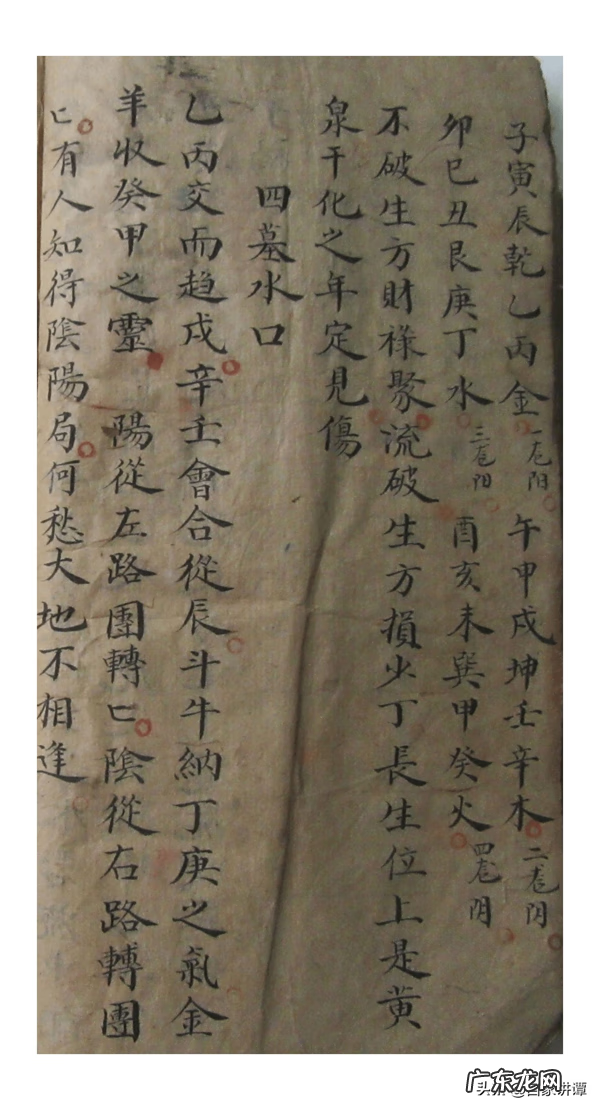 子寅辰乾乙丙金 一卮阳 午甲戌坤壬辛木 二卮阴
卯巳丑艮庚丁水 三卮阳 酉亥未巽甲癸火 四卮阴
不破生方財祿聚流破生方損少丁長生位上是黄
泉干化之年定見傷
四墓水口
乙丙交而趋戌辛壬會合從辰斗牛納丁庚之氣金
羊收癸甲之靈 陽從左路團轉匕陰從右路轉團
匕有人知得陰陽局何愁大地不相逢
广东龙网